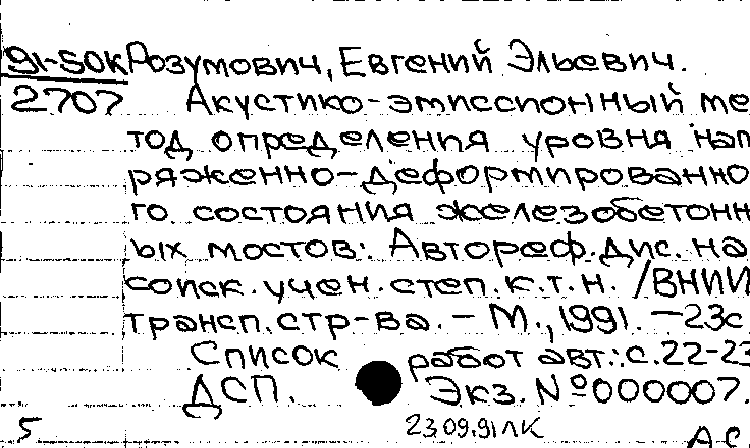 91-50К Розумович, Евгений Эльевич.
2707 Акустико-эмиссионный ме
тод определения уровня нап
ряженно-деформированно
го состояния железобетонн
ых мостов: Автореф. дис. на
соиск. учен. степ. к.т.н. /ВНИИ
трансп. стр-ва. – М., 1991. – 23с
Список работ авт.: с. 22-23
ДСП. Экз. № 000007.
23.09.91 ЛК
5 АС